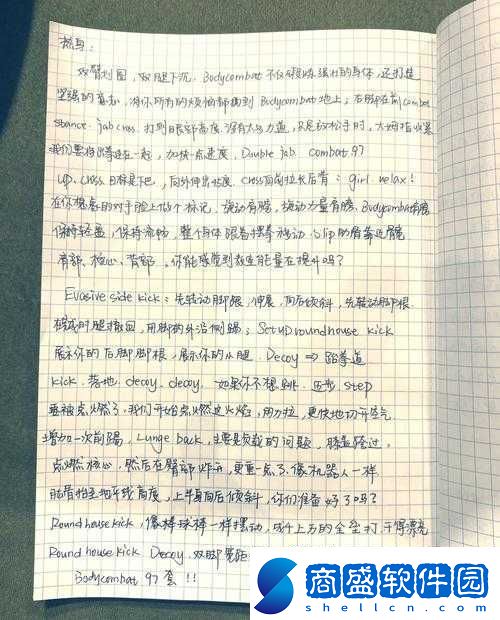 热身：
双臂划圈，双腿下沉. Bodycombat 不仅锻炼强壮的身体，还打造
坚强的意志. 将你所有的烦恼都踢到 Bodycombat 地上；右脚在前 combat
stance. jab cross. 打到眼部高度. 没有太多力道，只是放松手时，大拇指收紧
我们要将出拳连在一起，加快一点速度. Double jab. combat 97
up. cross 目标是下巴，向外伸出长度. cross 向侧拉长后背；girl. relax!
在你想想的对手脸上做个标记，旋动有髋，旋动力量有髋. Bodycombat
保持轻盈，保持流畅，整个身体跟着摆拳移动. slip 的肩靠近髋
肩部、核心、背部，你能感觉到我这能量在提升吗？
Evasive side kick：先转动脚跟，伸展，向后倾斜，先转动脚根
在我的腿撤回，用脚的外沿侧踢；Set up roundhouse kick
展示你的后脚脚跟，展示你的小腿. Decoy ⇒ 跆拳道
kick. 落地. decoy. decoy. 如果你不想跳. 迈步. step
再被点燃了，我们开始点燃这火焰，用力拉，更快地切开空气.
增加一次前踢，Lunge back，主要是负载的问题，膝盖弯过.
点燃核心，然后在臀部炸开，更重一点了. 像机器人一样
肚脐抬至地平线高度，上半身向后倾斜，你们准备好了吗？
Roundhouse kick，像棒球棒一样摆动，成千上万的全垒打. 干得漂亮
Roundhouse kick Decoy. 双脚宽距
Bodycombat 97 套 !!
商盛软件园
shellcn.com